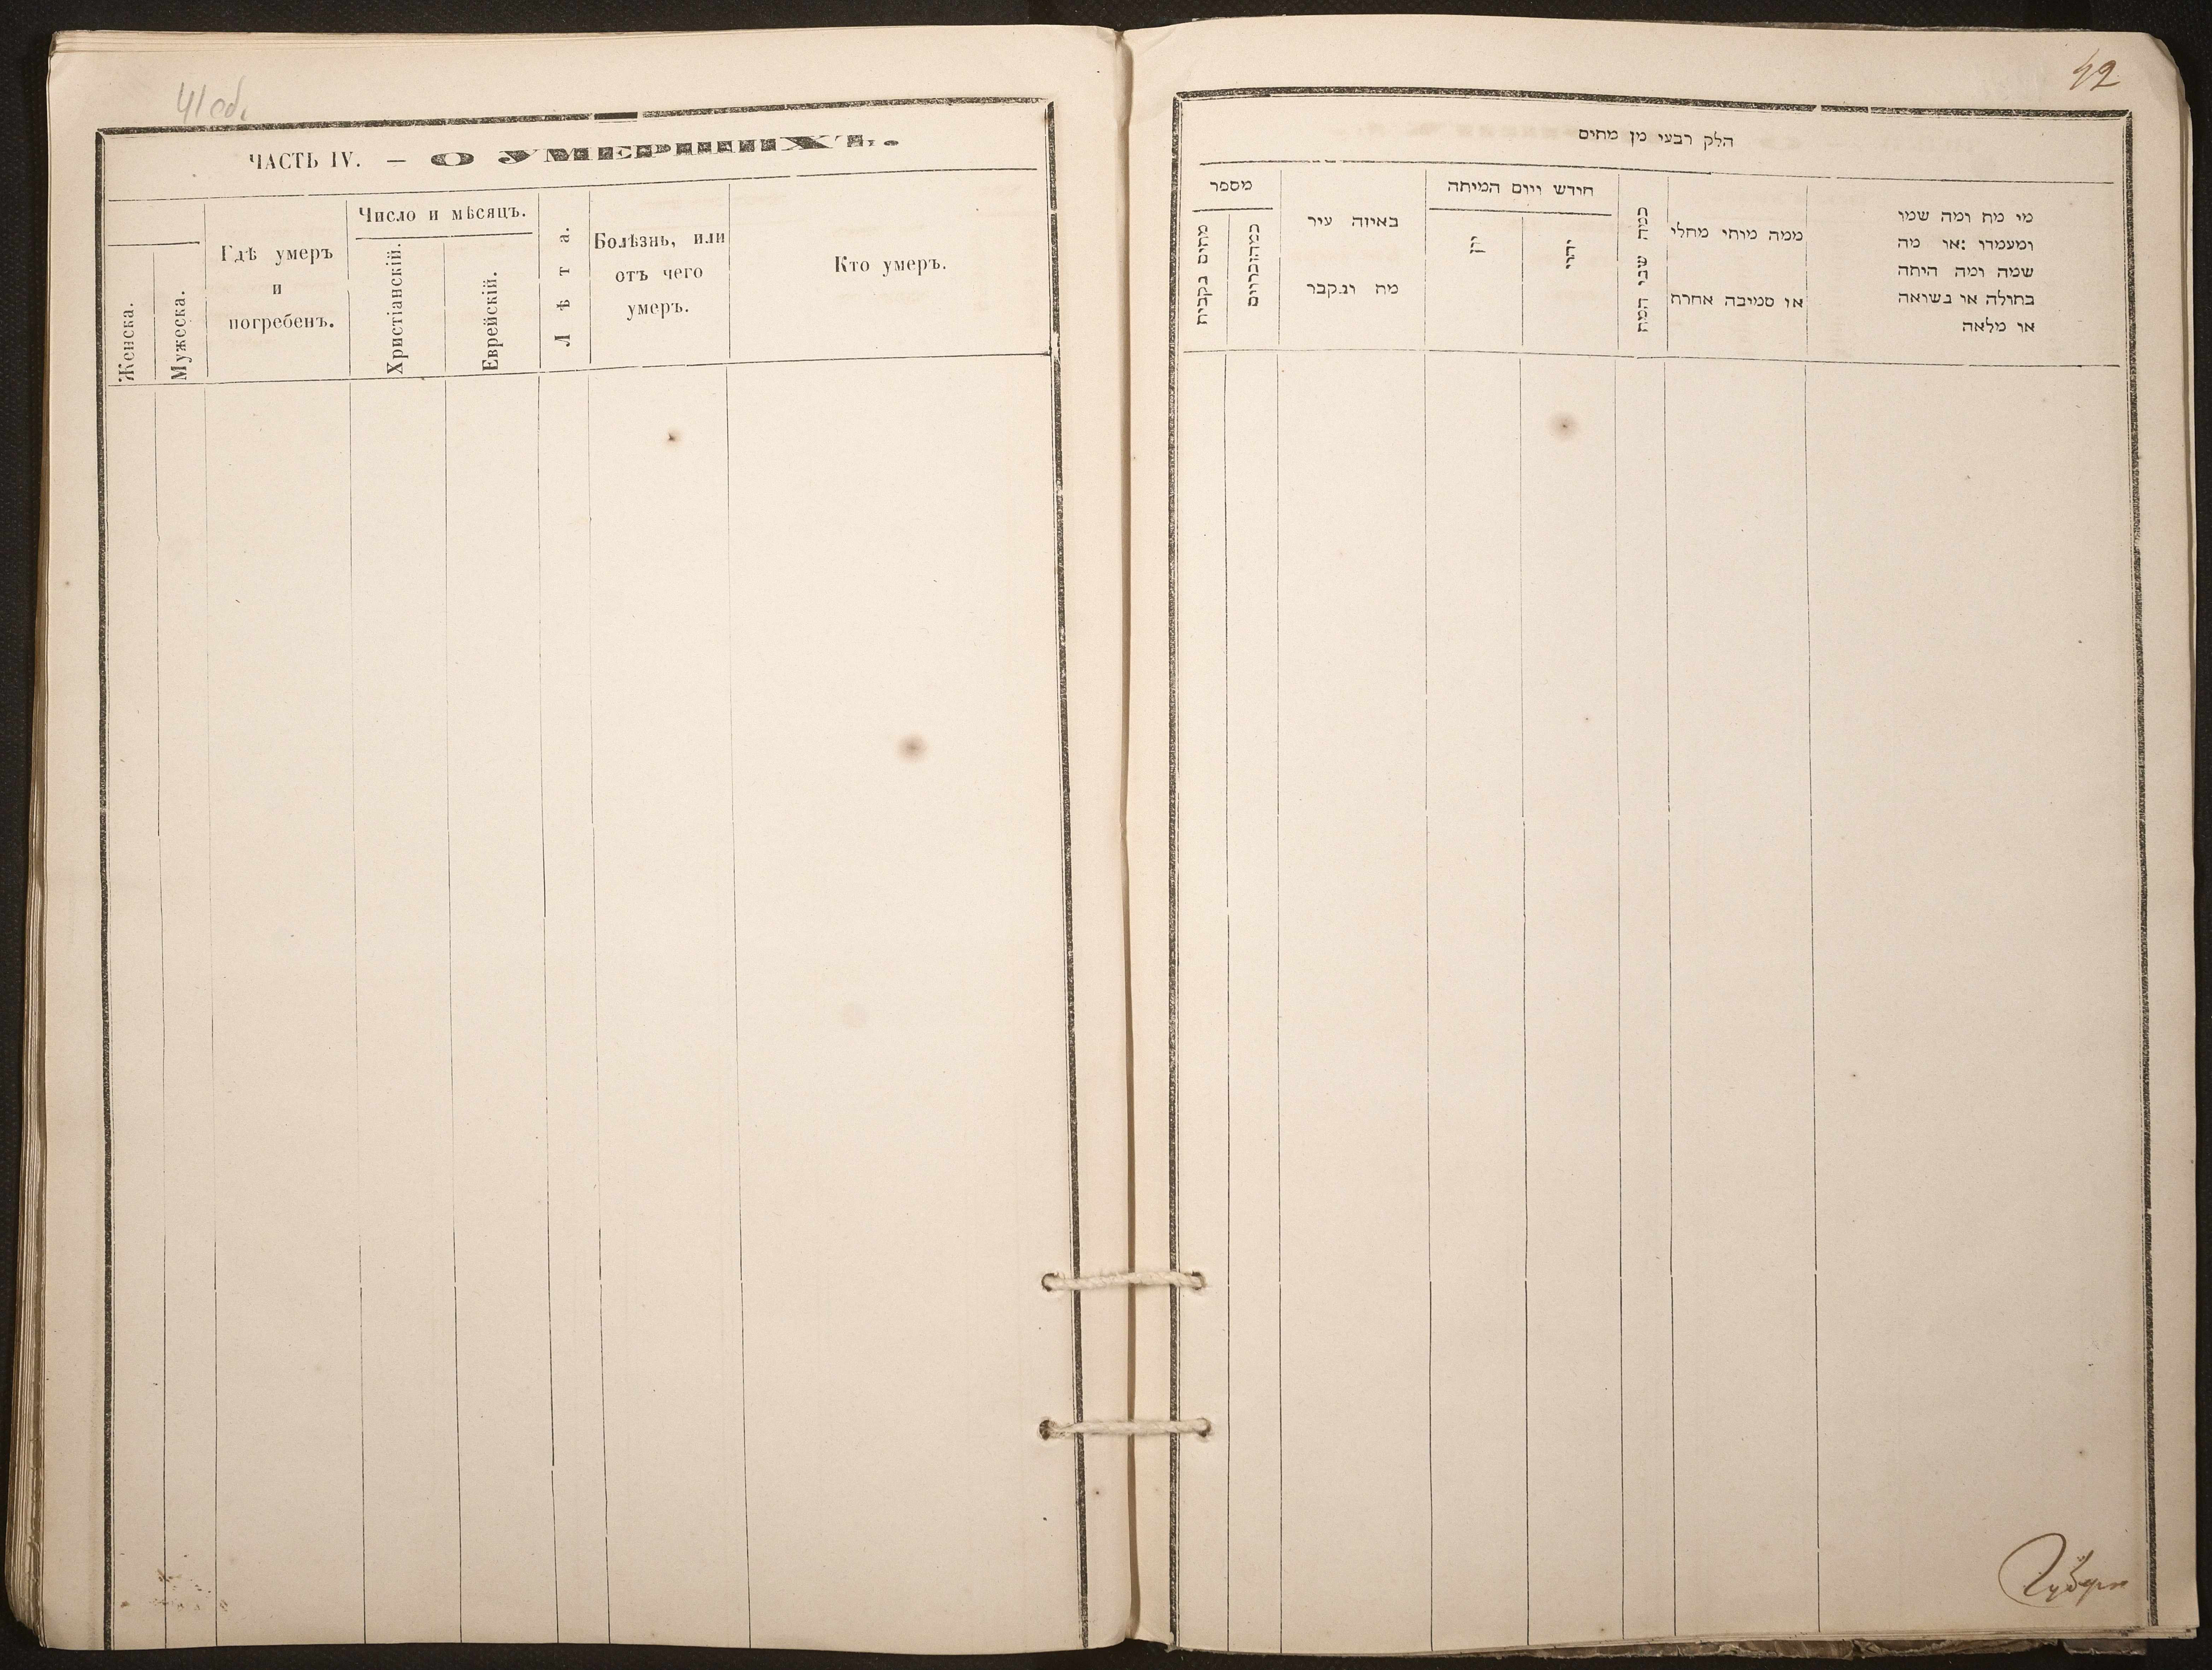 41 об.
ЧАСТЬ IV. — О УМЕРШИХЪ.
Женска.
Мужеска.
Гдѣ умеръ
и
погребенъ.
Число и мѣсяцъ.
Христіанскій.
Еврейскій.
Лѣта.
Болѣзнь, или
отъ чего
умеръ.
Кто умеръ.
42
הלק רבעי מן מתים
מספר
מתים נקבות
באיזה עיר
מת ונקבר
חודש ויום המיתה
יון
יהודי
כמה שני המת
ממה מותי מחלי
או סמיבה אחרת
מי מת ומה שמו
ומעמדו :או מה
שמה ומה היתה
בתולה או נשואה
או מלאה
Губерн